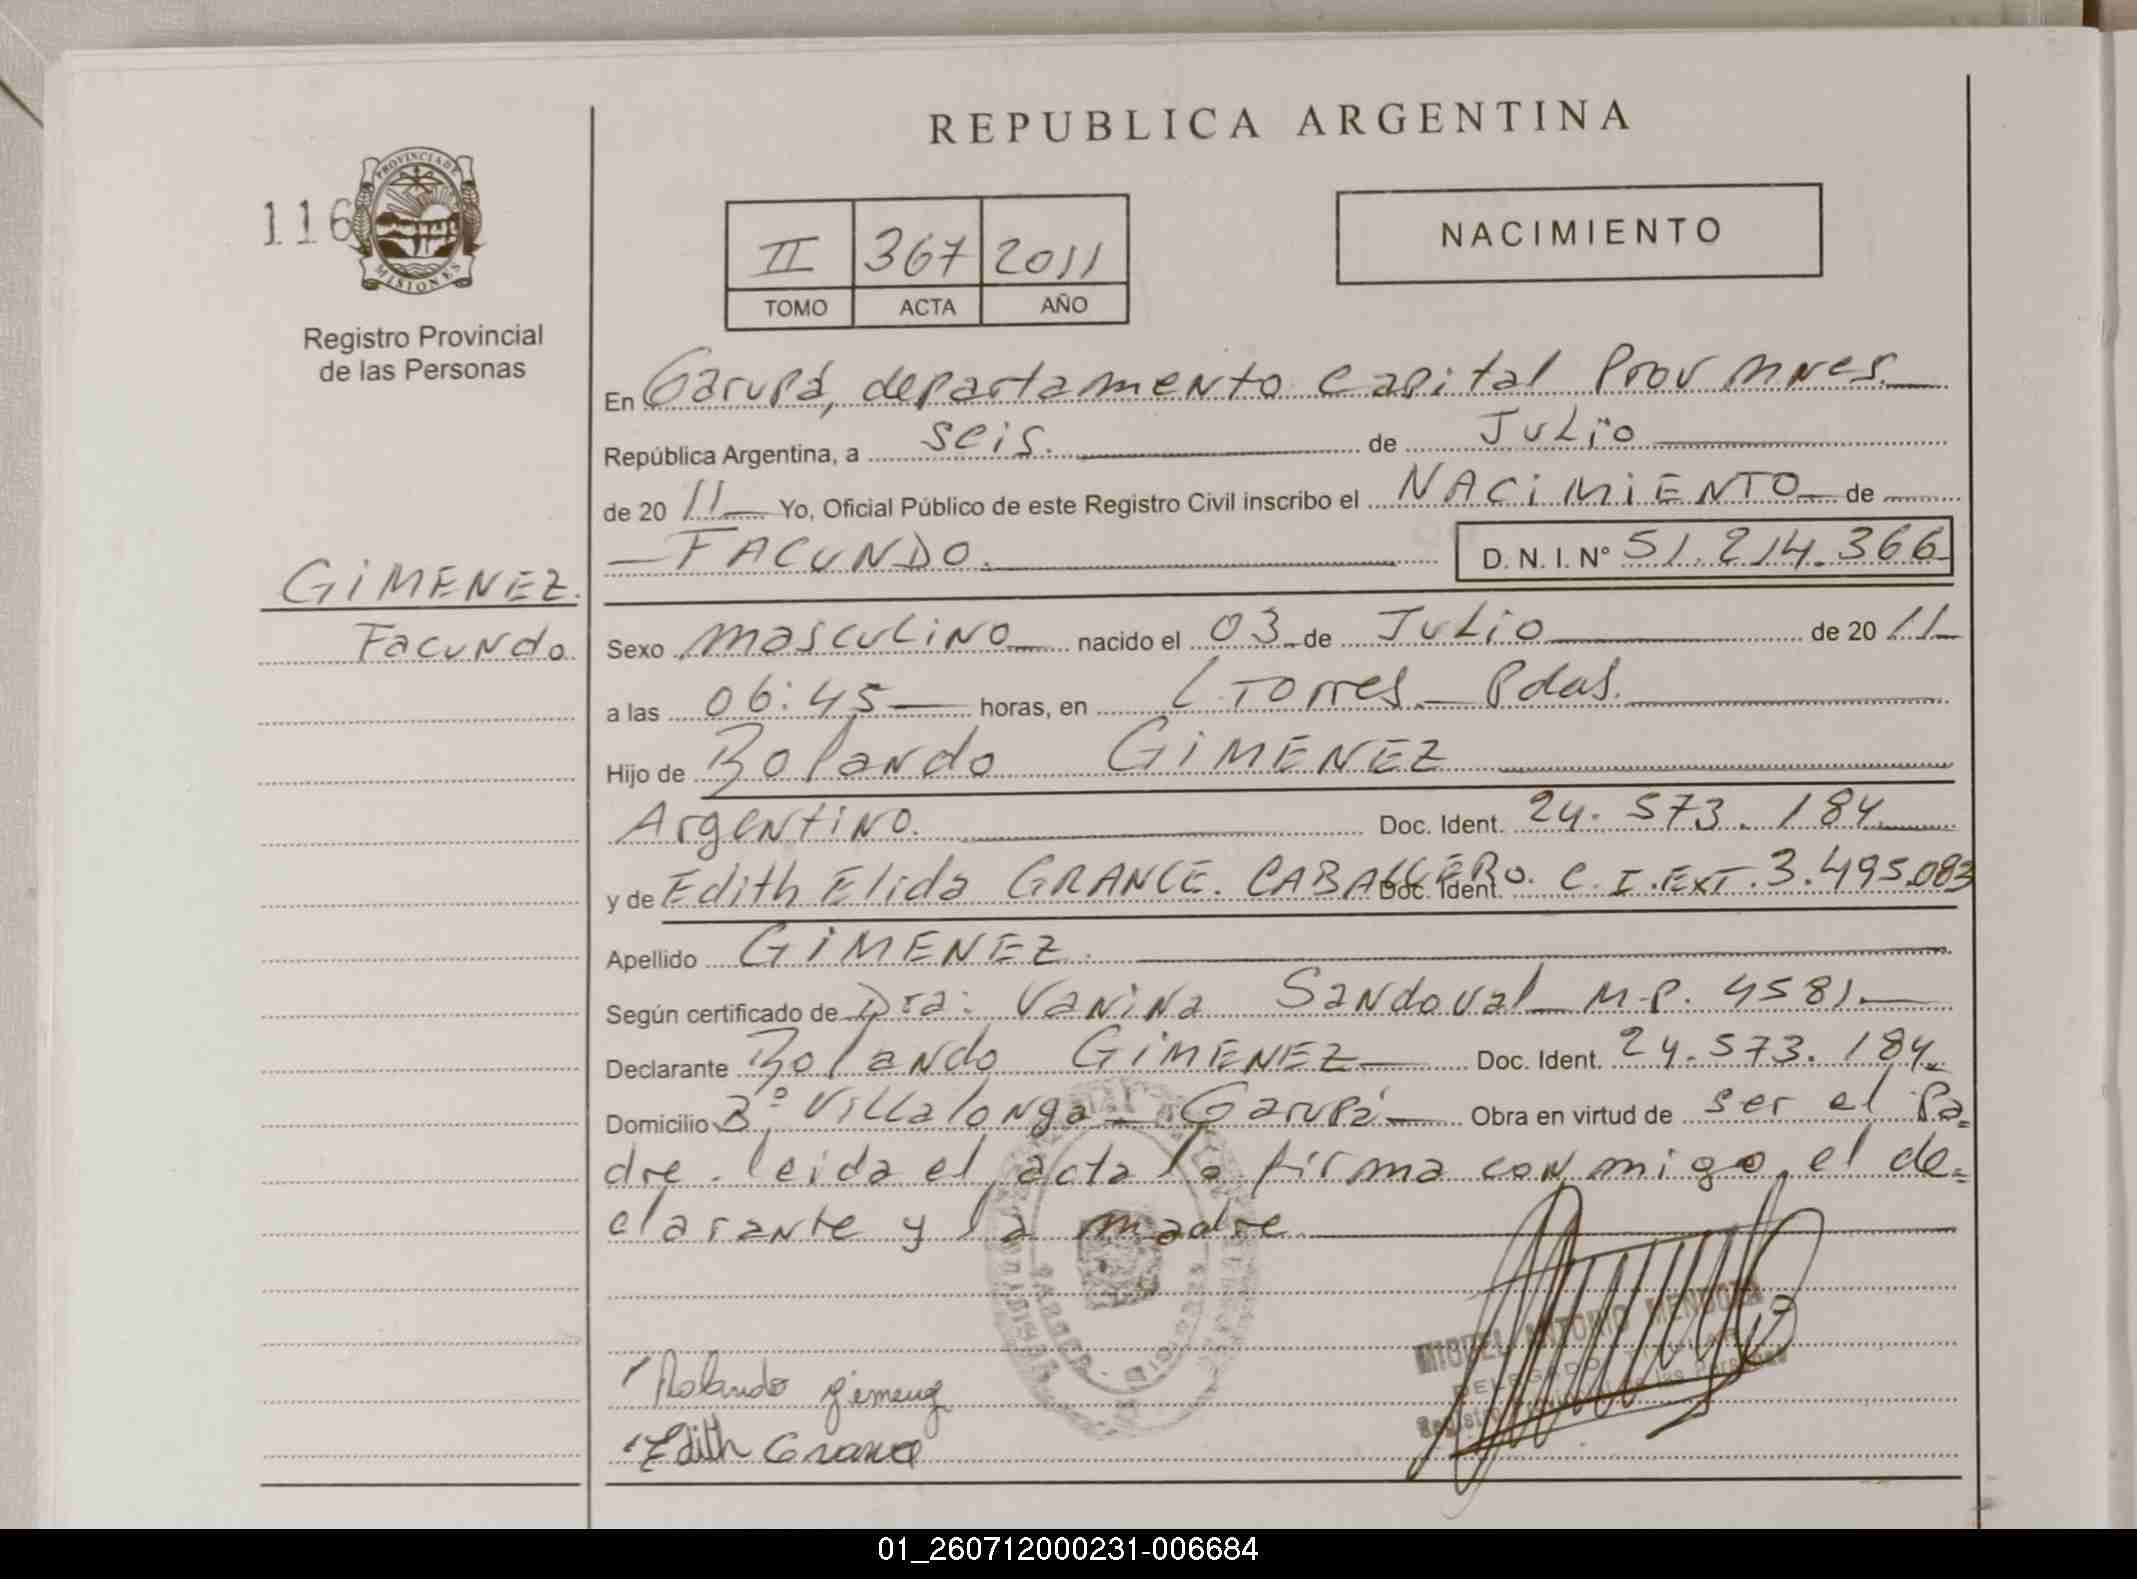 REPUBLICA ARGENTINA
116
PROVINCIA DE
MISIONES
Registro Provincial
de las Personas
II 367 2011
TOMO ACTA AÑO
NACIMIENTO
En Garupá, departamento capital Prov Mnes.
República Argentina, a seis. de Julio
de 20 11 Yo, Oficial Público de este Registro Civil inscribo el NACIMIENTO de
FACUNDO. D. N. I. N° 51.214.366
GIMENEZ.
Facundo.
Sexo masculino nacido el 03 de Julio de 20 11
a las 06:45 horas, en L Torres - Pdas.
Hijo de Rolando GIMENEZ
Argentino. Doc. Ident. 24.573.184
y de Edith Elida GRANCE. CABALLERO. Doc. Ident. C.I.EXT.3.495.083
Apellido GIMENEZ.
Según certificado de Dra: Vanina Sandoval M.P. 4581.
Declarante Rolando GIMENEZ Doc. Ident. 24.573.184
Domicilio B° Villalonga - Garupá Obra en virtud de ser el Pa=
dre. leida el acta la firma conmigo, el de=
clarante y la madre.
Rolando gimenez
Edith Grance
ANTONIO MENDOZA
DELEGADO TITULAR
Registro Provincial de las Personas
01_260712000231-006684